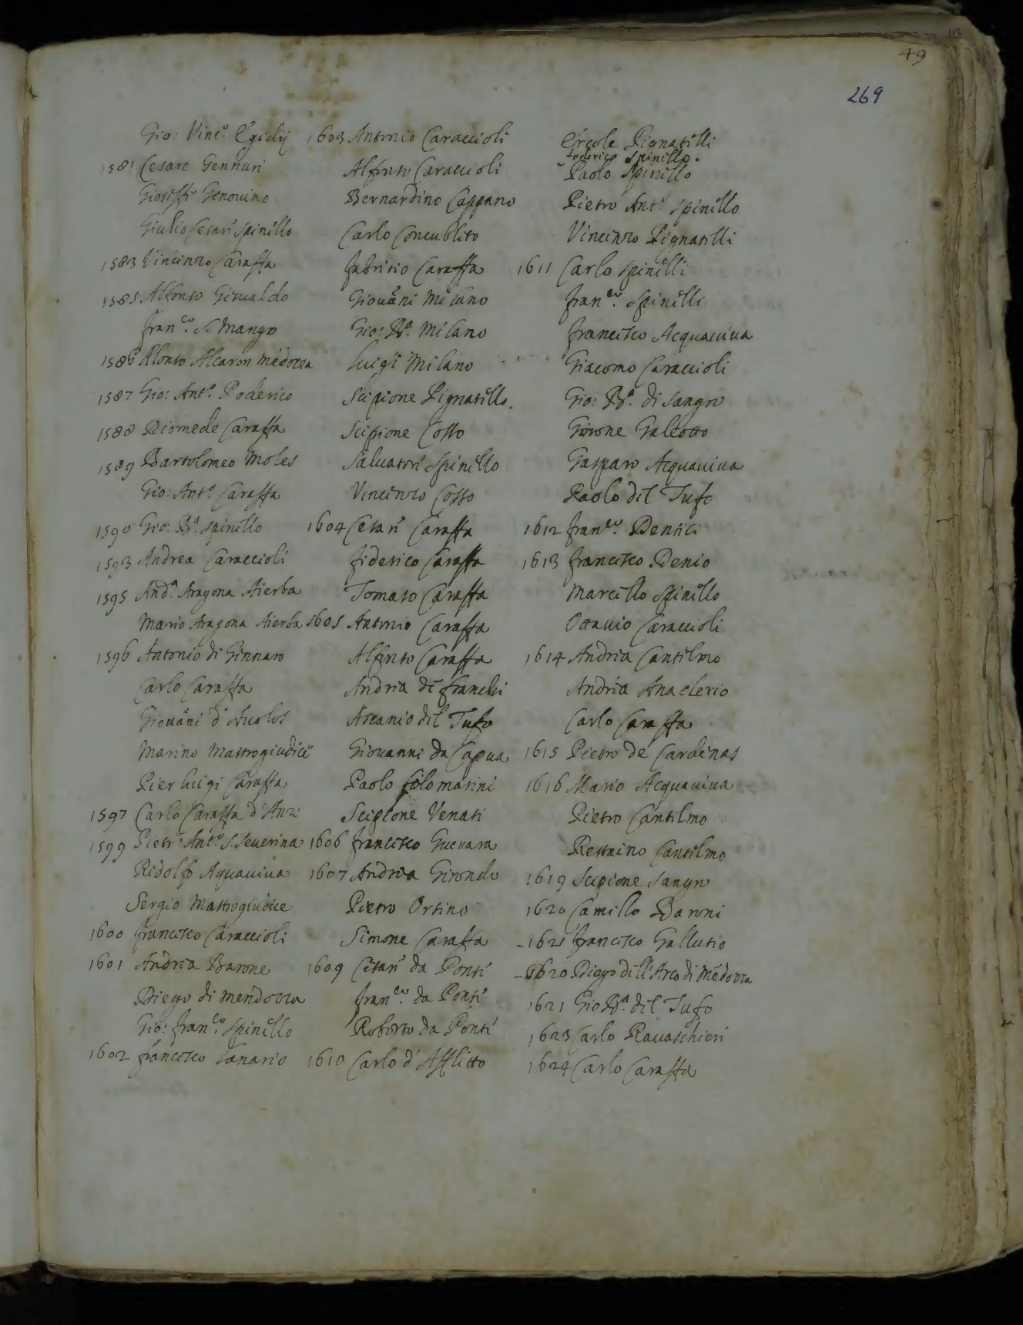 49
269
Gio: Vinc.o Egidij
1581 Cesare Gennari
Gioseffe Genovino
Giulio Cesare Spinillo
1583 Vincenzo Caraffa
1585 Alfonso Gisualdo
Fran.co S. Mango
1586 Alonso Alcaron Mēdozza
1587 Gio: Ant.o Poderico
1588 Diomede Caraffa
1589 Bartolomeo Moles
Gio: Ant.o Caraffa
1590 Gio: B.a Spinillo
1593 Andrea Caraccioli
1595 And.a Aragona Aierba
Mario Aragona Aierba
1596 Antonio di Ginnaro
Carlo Caraffa
Giovāni d'Avolos
Marino Mastrogiudice
Pier luigi Caraffa
1597 Carlo Caraffa d'Anzi
1599 Pietr' Ant.o S. Severina
Ridolfo Aquaviva
Sergio Mastrogiudice
1600 Francesco Caraccioli
1601 Andrea Barone
Diego di Mendozza
Gio: Fran.co Spinillo
1602 Francesco Lanario
1603 Antonio Caraccioli
Alfonso Caraccioli
Bernardino Cappano
Carlo Concublito
Fabritio Caraffa
Giovāni Milano
Gio: B.a Milano
Luigi Milano
Scipione Pignatillo
Scipione Cosso
Salvatore Spinillo
Vincenzo Cosso
1604 Cesare Caraffa
Fiderico Caraffa
Tomaso Caraffa
1605 Antonio Caraffa
Alfonso Caraffa
Andria di Franchi
Ascanio dil Tufo
Giovanni da Capua
Paolo Filomarini
Scipione Venati
1606 Francesco Guevara
1607 Andrea Girondo
Pietro Orsino
Simone Caraffa
1609 Cesare da Ponte
Fran.co da Ponte
Roberto da Ponte
1610 Carlo d'Afflitto
Ercole Pignatilli
Federico Spinillo
Paolo Spinillo
Pietro Ant.o Spinillo
Vincenzo Pignatilli
1611 Carlo Spinelli
Fran.co Spinilli
Francesco Acquaviva
Giacomo Caraccioli
Gio: B.a di Sangro
Girone Galeotto
Gasparo Acquaviva
Paolo dil Tufo
1612 Fran.co Dentici
1613 Francesco Denio
Marcillo Spinillo
Ottavio Caraccioli
1614 Andria Cantilmo
Andria Anaclerio
Carlo Caraffa
1615 Pietro de Cardenas
1616 Mario Acquaviva
Pietro Cantilmo
Restaino Cantilmo
1619 Scipione Sangro
1620 Camillo Baroni
1621 Francesco Gallutio
1620 Diego dill'Arco di Mēdozza
1621 Gio B.a dil Tufo
1623 Carlo Ravaschieri
1624 Carlo Caraffa